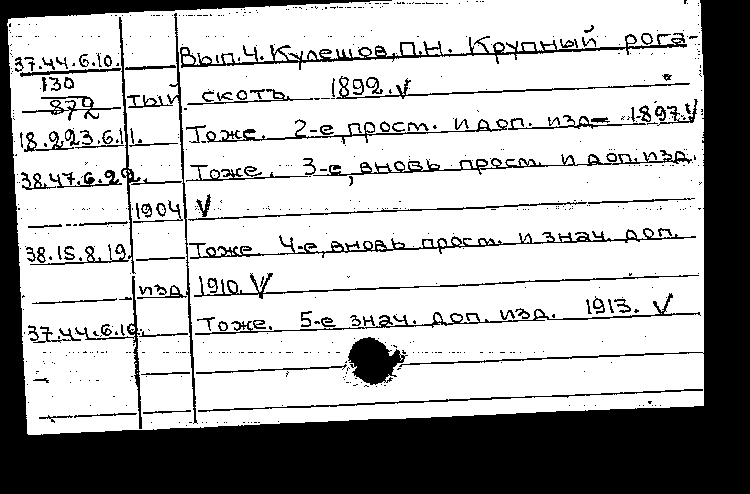 37.44.6.10. Вып.4. Кулешов, П.Н. Крупный рога-
130
872 тый скотъ. 1892. V
18.223.6.11. Тоже. 2-е, прост. и доп. изд. 1897. V
38.47.6.22. Тоже. 3-е, вновь прост. и доп. изд.
1904 V
38.15.8.19. Тоже 4-е, вновь прост. и знач. доп.
изд. 1910. V
37.44.6.16. Тоже. 5-е знач. доп. изд. 1913. V